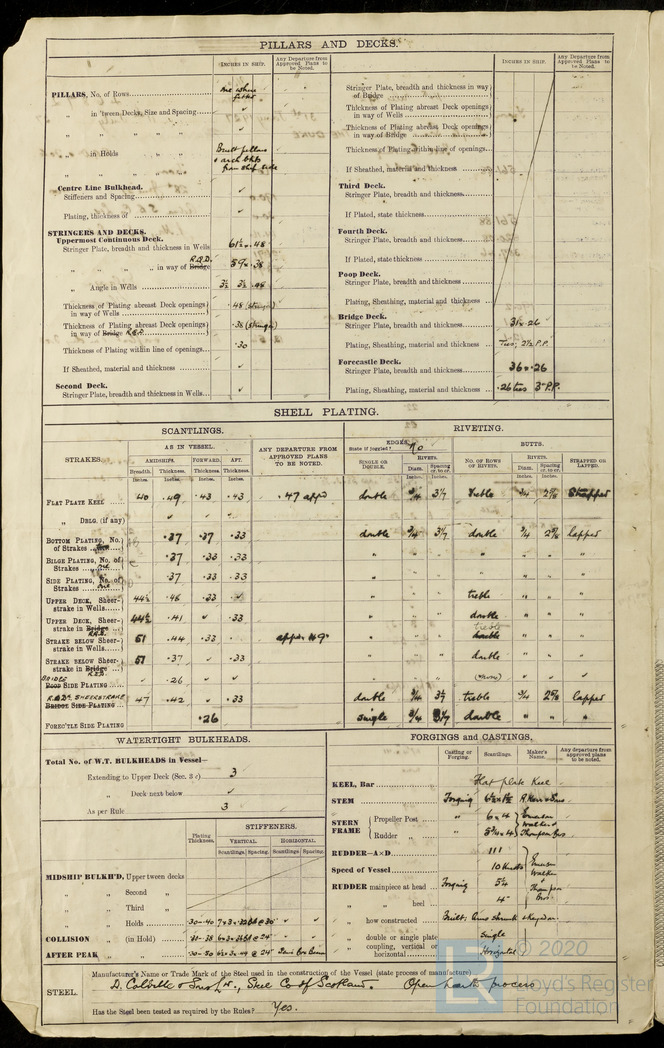 PILLARS AND DECKS.
INCHES IN SHIP.
Any Departure from Approved Plans to be Noted.
PILLARS, No. of Rows
one where fitted
" in 'tween Decks, Size and Spacing
" in Holds
Built pillars & arch bkts from ship side
Centre Line Bulkhead.
Stiffeners and Spacing
Plating, thickness of
STRINGERS AND DECKS.
Uppermost Continuous Deck.
Stringer Plate, breadth and thickness in Wells
61½ × .48
" " " " in way of Bridge R.Q.D.
59 × .38
" Angle in Wells
3½ 3½ .48
Thickness of Plating abreast Deck openings in way of Wells
.48 (stringer)
Thickness of Plating abreast Deck openings in way of Bridge R.Q.D.
.38 (stringer)
Thickness of Plating within line of openings
.30
If Sheathed, material and thickness
Second Deck.
Stringer Plate, breadth and thickness in Wells
INCHES IN SHIP.
Any Departure from Approved Plans to be Noted.
Stringer Plate, breadth and thickness in way of Bridge
Thickness of Plating abreast Deck openings in way of Wells
Thickness of Plating abreast Deck openings in way of Bridge
Thickness of Plating within line of openings
If Sheathed, material and thickness
Third Deck.
Stringer Plate, breadth and thickness
If Plated, state thickness
Fourth Deck.
Stringer Plate, breadth and thickness
If Plated, state thickness
Poop Deck.
Stringer Plate, breadth and thickness
Plating, Sheathing, material and thickness
Bridge Deck.
Stringer Plate, breadth and thickness
31 × .26
Plating, Sheathing, material and thickness
Ties, 2½ P.P.
Forecastle Deck.
Stringer Plate, breadth and thickness
36 × .26
Plating, Sheathing, material and thickness
.26 ties 3" P.P.
SHELL PLATING.
SCANTLINGS.
RIVETING.
STRAKES.
AS IN VESSEL.
AMIDSHIPS.
FORWARD.
AFT.
Breadth.
Thickness.
Thickness.
Thickness.
ANY DEPARTURE FROM APPROVED PLANS TO BE NOTED.
EDGES
State if joggled? No
SINGLE OR DOUBLE.
RIVETS.
Diam.
Spacing cr. to cr.
BUTTS.
NO. OF ROWS OF RIVETS.
RIVETS.
Diam.
Spacing cr. to cr.
STRAPPED OR LAPPED.
Inches. Inches. Inches. Inches. Inches. Inches. Inches. Inches.
FLAT PLATE KEEL 40 .49 .43 .43 .47 appd double ¾ treble ¾ Strapped
" DBLG. (if any)
BOTTOM PLATING, No. of Strakes .37 .37 .33 double ¾ double ¾ lapped
BILGE PLATING, No. of Strakes one .37 .33 .33 " " " " " "
SIDE PLATING, No. of Strakes one .37 .33 .33 " " " " " "
UPPER DECK, Sheer-strake in Wells 44½ .48 .33 treble " " "
UPPER DECK, Sheer-strake in Bridge 44½ .41 .33 double " " "
STRAKE BELOW Sheer-strake in Wells 61 .44 .33 " " " "
STRAKE BELOW Sheer-strake in Bridge R.Q.D. 61 .37 .33 " " " double " " "
POOP SIDE PLATING .26
R.Q.D. SHEERSTRAKE
BRIDGE SIDE PLATING 47 .42 .33 double ¾ treble ¾ lapped
FOREC'TLE SIDE PLATING .26 single ¾ double " " "
WATERTIGHT BULKHEADS.
Total No. of W.T. BULKHEADS in Vessel—
Extending to Upper Deck (Sec. 3 c) 3
" Deck next below
As per Rule 3
STIFFENERS.
Plating Thickness.
VERTICAL.
HORIZONTAL.
Scantlings. Spacing. Scantlings. Spacing.
MIDSHIP BULKH'D, Upper tween decks
" " Second "
" " Third "
" " Holds
COLLISION " (in Hold)
AFTER PEAK "
FORGINGS and CASTINGS,
Casting or Forging.
Scantlings.
Maker's Name.
Any departure from approved plans to be noted.
KEEL, Bar
Flat plate Keel
STEM Forging
STERN FRAME
Propeller Post " 6 × 4
Rudder "
RUDDER—A×D 111
Speed of Vessel 10 Knots
RUDDER mainpiece at head Forging 5¼
" " heel 4"
" how constructed Built,
" double or single plate Single
" coupling, vertical or horizontal Horizontal
© 2020
Lloyd's Register Foundation
STEEL.
Manufacturer's Name or Trade Mark of the Steel used in the construction of the Vessel (state process of manufacture)
D. Colville & Sons Ld., Steel Co of Scotland. Open hearth process
Has the Steel been tested as required by the Rules? Yes.